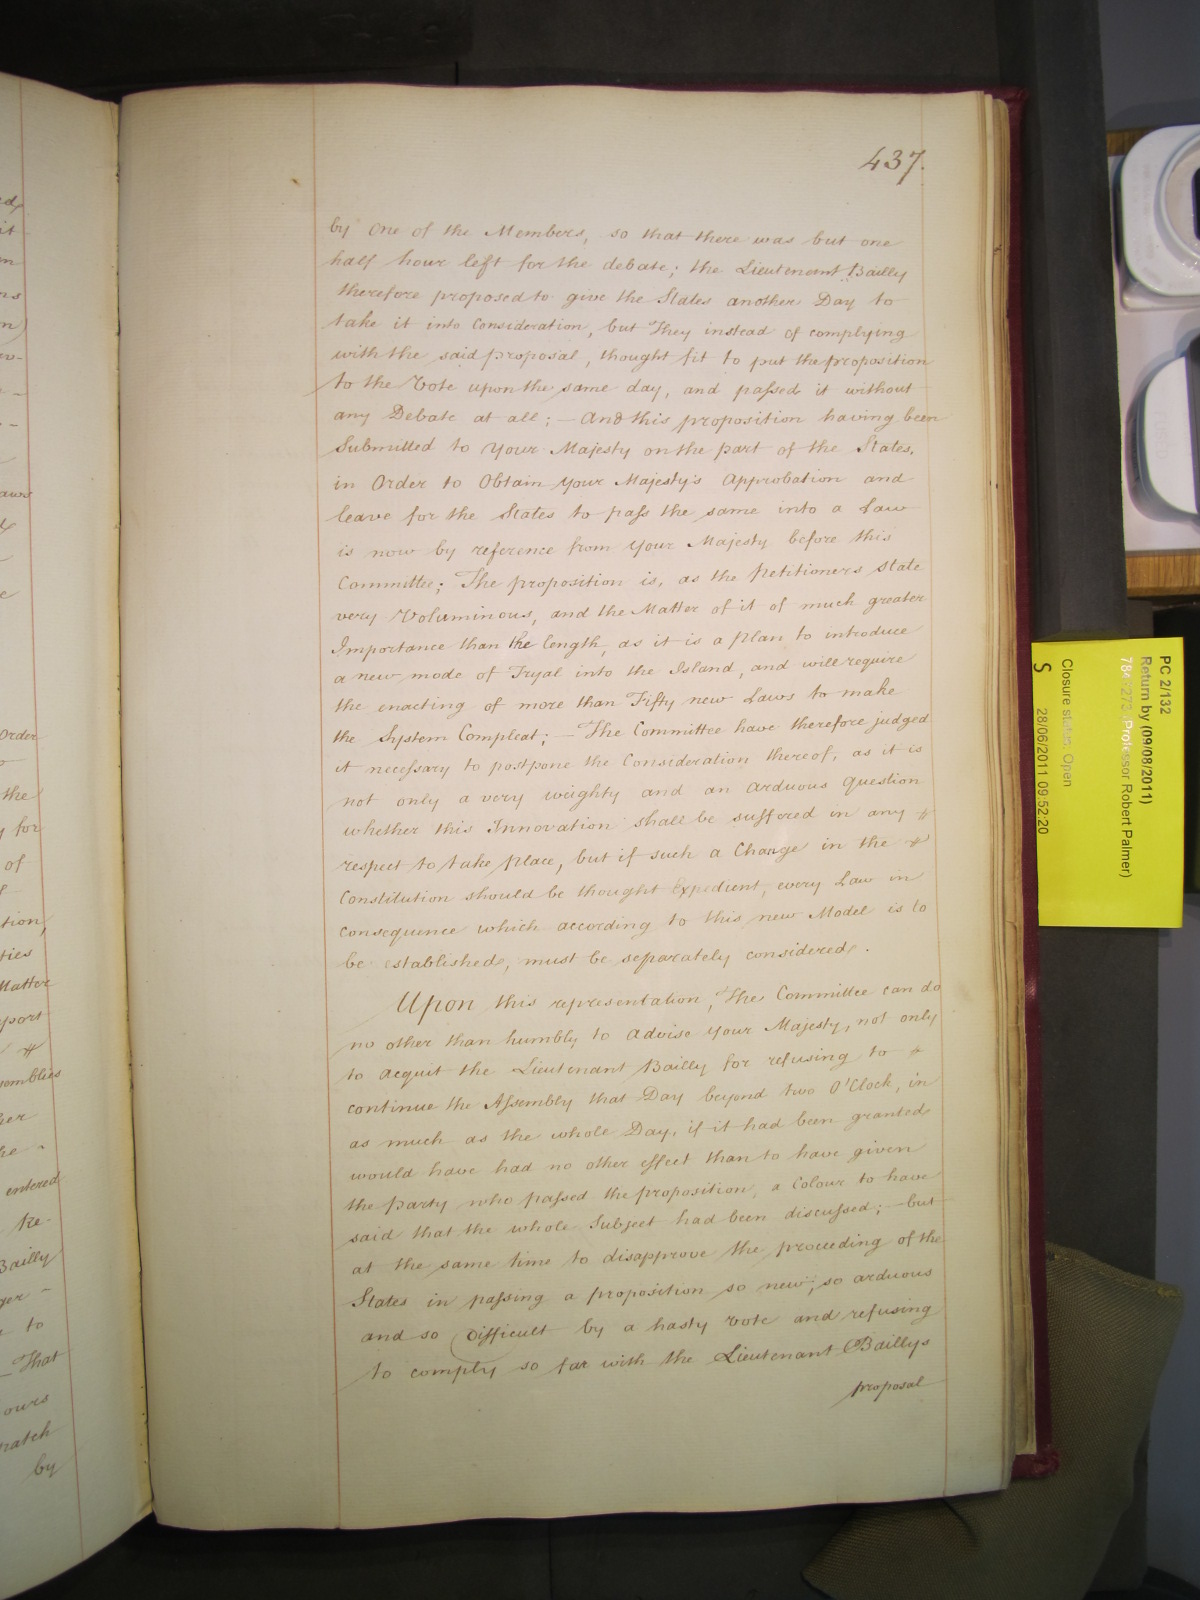 ed
it
m
ns
n)
aws
e
Order
the
y for
of
tion,
ties
Matter
port
semblies
her
he -
entered
Re-
Bailly
ger -
to
That
ours
patch
by
437.
by one of the Members, so that there was but one
half hour left for the debate; the Lieutenant Bailly
therefore proposed to give the States another Day to
take it into Consideration, but They instead of complying
with the said proposal, thought fit to put the proposition
to the Vote upon the same day, and passed it without
any Debate at all; — And this proposition having been
Submitted to Your Majesty on the part of the States,
in Order to Obtain Your Majesty's Approbation and
leave for the States to pass the same into a Law
is now by reference from Your Majesty before this
Committee; The proposition is, as the Petitioners state
very Voluminous, and the Matter of it of much greater
Importance than the length, as it is a Plan to introduce
a new mode of Tryal into the Island, and will require
the enacting of more than Fifty new Laws to make
the System Compleat; — The Committee have therefore judged
it necessary to postpone the Consideration thereof, as it is
not only a very weighty and an arduous Question
whether this Innovation shall be suffered in any
respect to take Place, but if such a Change in the
Constitution should be thought Expedient, every Law in
consequence which according to this new Model is to
be established, must be separately considered.
Upon this representation, The Committee can do
no other than humbly to advise Your Majesty, not only
to acquit the Lieutenant Bailly for refusing to
continue the Assembly that Day beyond two O'Clock, in
as much as the whole Day, if it had been granted
would have had no other effect than to have given
the Party who passed the proposition, a Colour to have
said that the whole Subject had been discussed; — but
at the same time to disapprove the proceeding of the
States in passing a proposition so new, so arduous
and so Difficult by a hasty Vote and refusing
to comply so far with the Lieutenant Baillys
proposal
PC 2/132
Return by (09/08/2011)
Professor Robert Palmer)
Closure status: Open
S 28/06/2011 09:52:20